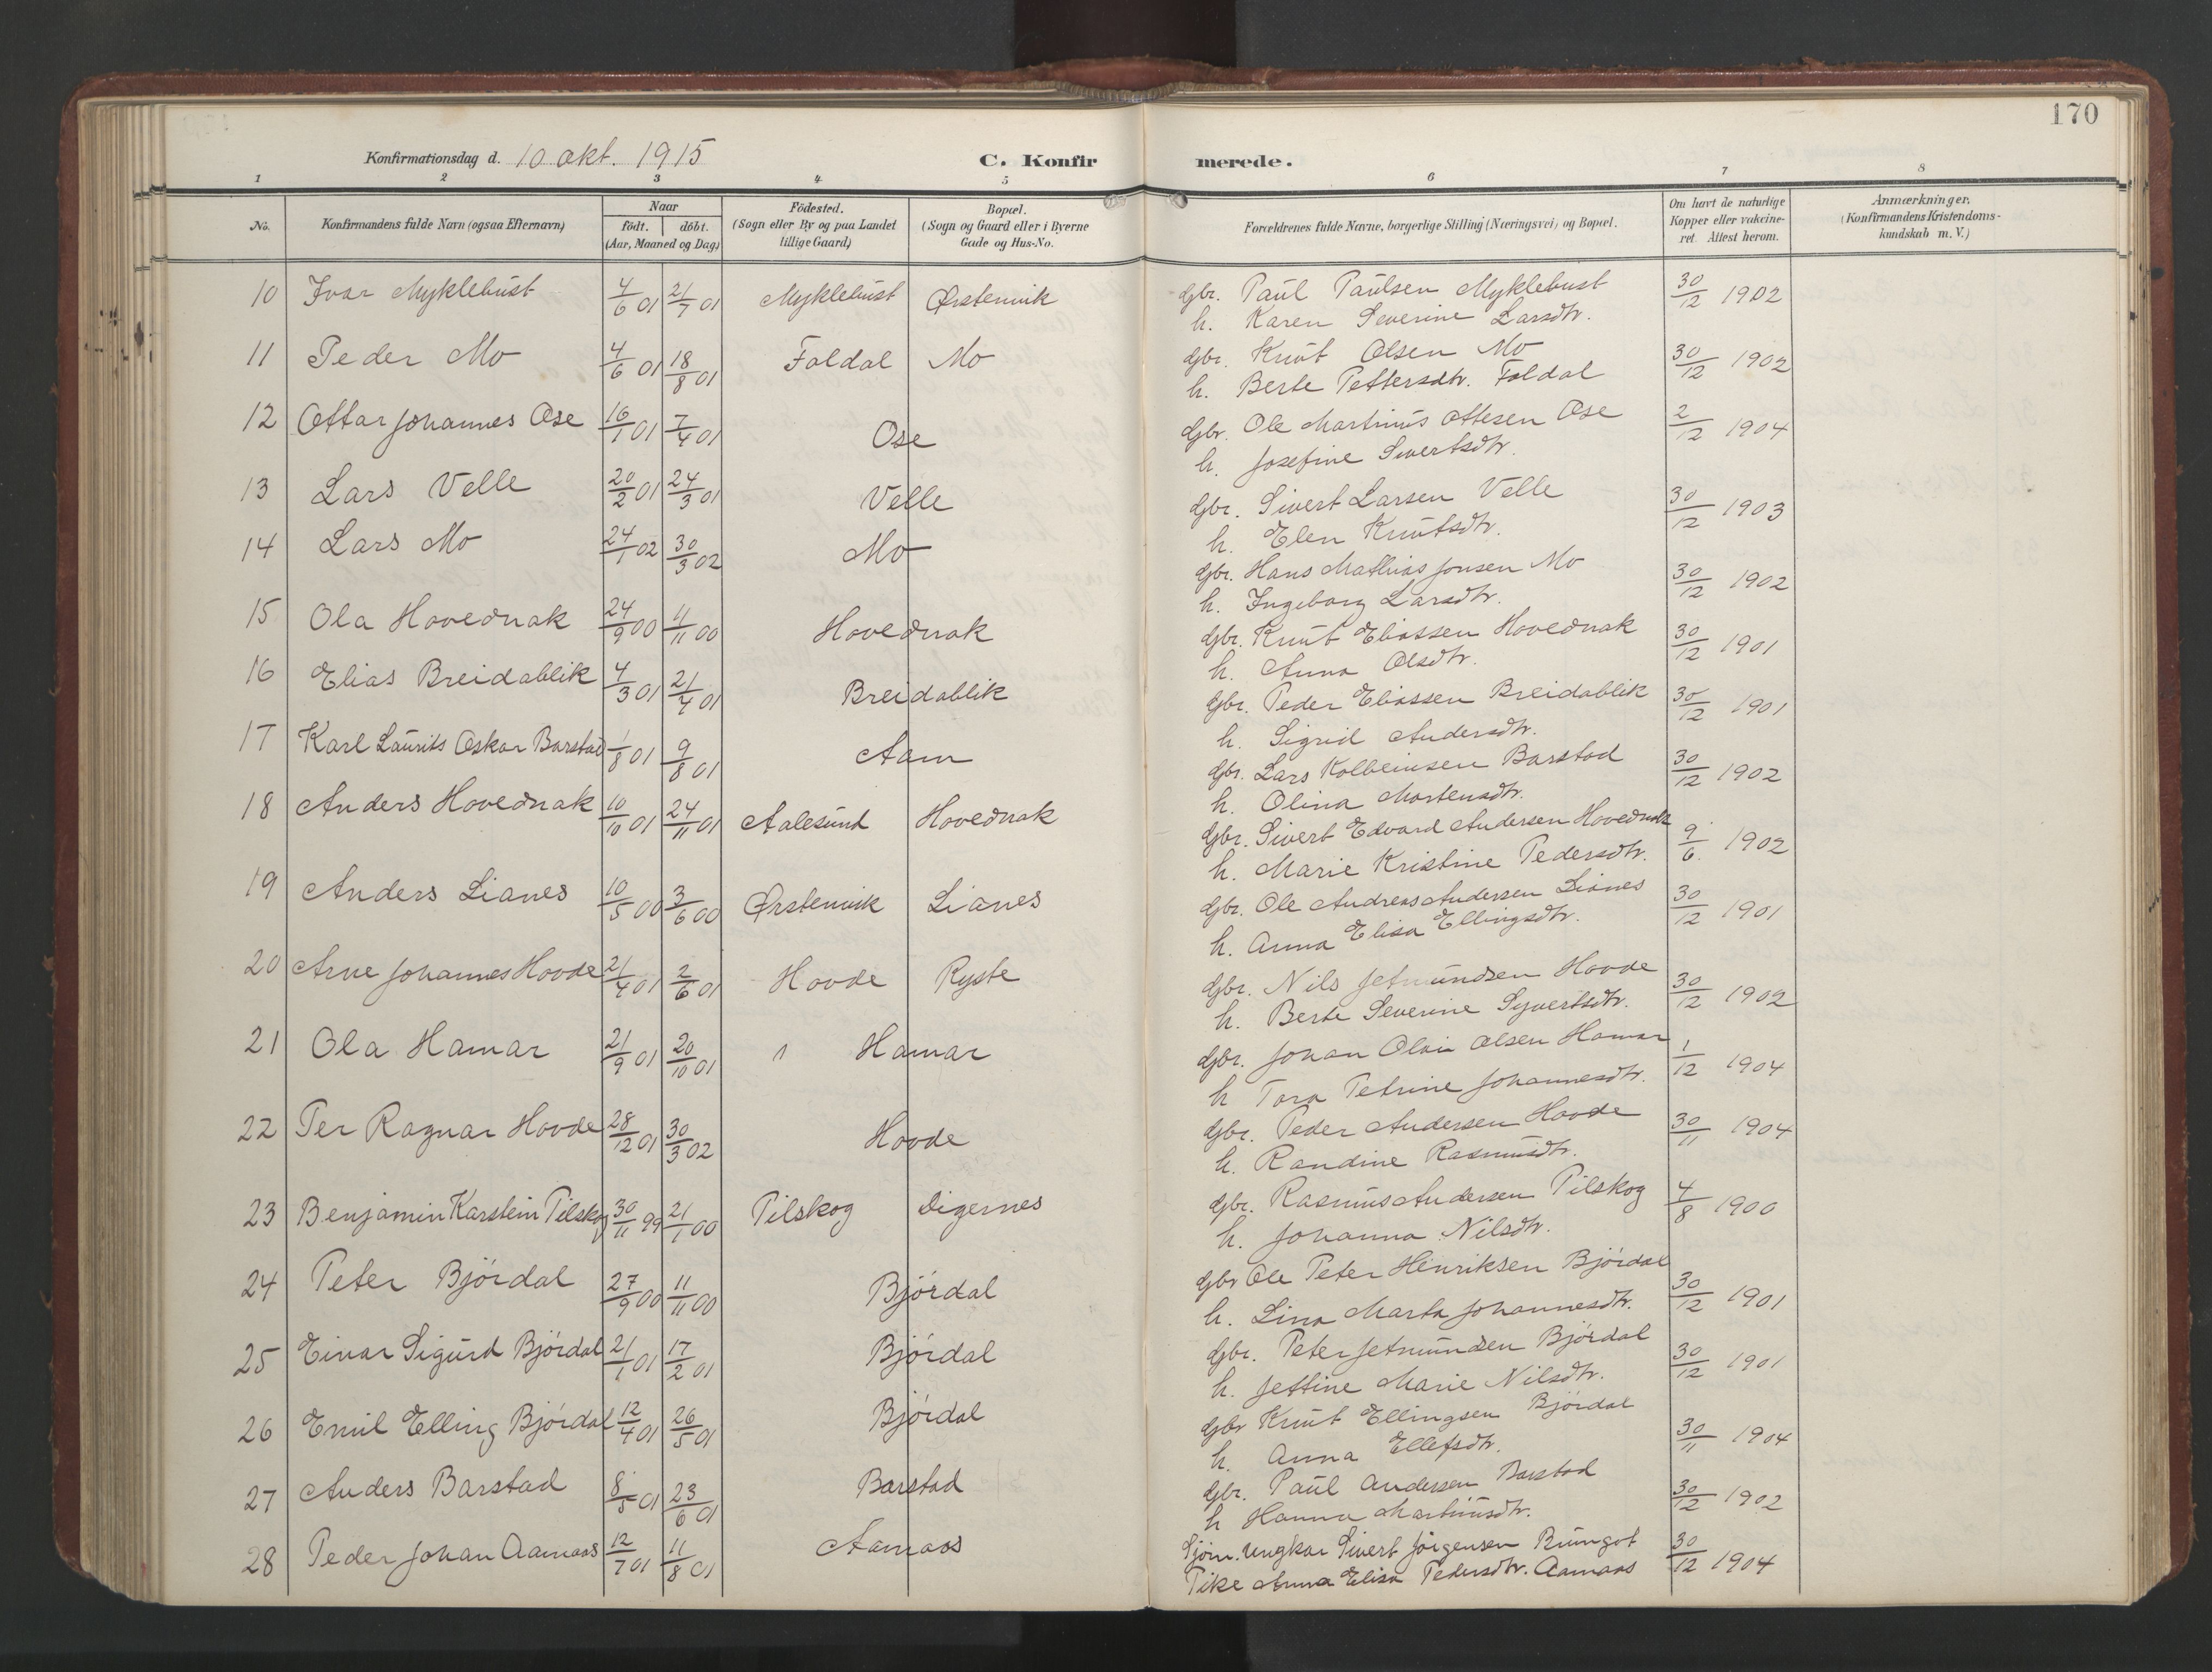 170
Konfirmationsdag d. 10 okt. 1915 C. Konfirmerede.
1 2 3 4 5 6 7 8
No. Konfirmandens fulde Navn (ogsaa Efternavn) Naar födt. döbt. (Aar, Maaned og Dag) Födested. (Sogn eller By og paa Landet tillige Gaard) Bopæl. (Sogn og Gaard eller i Byerne Gade og Hus-No. Forældrenes fulde Navne, borgerlige Stilling (Næringsvei) og Bopæl. Om havt de naturlige Kopper eller vakcineret. Attest herom. Anmærkninger. (Konfirmandens Kristendomskundskab m. V.)
10 Ivar Myklebust 4/6 01 21/7 01 Myklebust Ørstenvik Gbr. Paul Paulsen Myklebust 30/12 1902
h. Karen Severine Larsdtr.
11 Peder Mo 4/6 01 18/8 01 Foldal Mo Gbr. Knut Olsen Mo 30/12 1902
h. Berte Pettersdtr. Foldal
12 Ottar Johannes Ose 16/1 01 7/4 01 Ose Gbr. Ole Martinus Ottesen Ose 2/12 1904
h. Josefine Sivertsdtr.
13 Lars Velle 20/2 01 24/3 01 Velle Gbr. Sivert Larsen Velle 30/12 1903
h. Elen Knutsdtr.
14 Lars Mo 24/1 02 30/3 02 Mo Gbr. Hans Mathias Jonsen Mo 30/12 1902
h. Ingeborg Larsdtr.
15 Ola Hovednak 24/9 00 4/11 00 Hovednak Gbr. Knut Eliassen Hovednak 30/12 1901
h. Anna Olsdtr.
16 Elias Breidablik 4/3 01 21/4 01 Breidablik Gbr. Peder Eliassen Breidablik 30/12 1901
h. Sigrid Andersdtr.
17 Karl Laurits Oskar Barstad 1/8 01 9/8 01 Aam Gbr. Lars Kolbeinsen Barstad 30/12 1902
h. Olina Mortensdtr.
18 Anders Hovednak 10/10 01 24/11 01 Aalesund Hovednak Gbr. Sivert Edvard Andersen Hovednak 9/6 1902
h. Marie Kristine Pedersdtr.
19 Anders Lianes 10/5 00 3/6 00 Ørstenvik Lianes Gbr. Ole Andreas Andersen Lianes 30/12 1901
h. Anna Elisa Ellingsdtr.
20 Arne Johannes Hovde 21/4 01 2/6 01 Hovde Ryste Gbr. Nils Jetmundsen Hovde 30/12 1902
h. Berte Severine Syvertsdtr.
21 Ola Hamar 21/9 01 20/10 01 Hamar Gbr. Johan Olai Olsen Hamar 1/12 1904
h Tora Petrine Johannesdtr.
22 Per Ragnar Hovde 28/12 01 30/3 02 Hovde Gbr. Peder Andersen Hovde 30/11 1904
h. Randine Rasmusdtr.
23 Benjamin Karstein Pilskog 30/11 99 21/1 00 Pilskog Digernes Gbr. Rasmus Andersen Pilskog 4/8 1900
h. Johanna Nilsdtr.
24 Peter Bjørdal 27/9 00 11/11 00 Bjørdal Gbr Ole Peter Henriksen Bjørdal 30/12 1901
h. Lina Marta Johannesdtr.
25 Einar Sigurd Bjørdal 21/1 01 17/2 01 Bjørdal Gbr. Peter Jetmundsen Bjørdal 30/12 1901
h. Jettine Marie Nilsdtr.
26 Emil Elling Bjørdal 12/4 01 26/5 01 Bjørdal Gbr Knut Ellingsen Bjørdal 30/11 1904
h. Anna Ellefsdtr.
27 Anders Barstad 8/5 01 23/6 01 Barstad Gbr. Paul Andersen Barstad 30/12 1902
h Hanna Martinusdtr.
28 Peder Johan Aamaas 12/7 01 11/8 01 Aamaas Sjøm. Ungkar Sivert Jörgensen Rungot 30/12 1904
Pike Anna Elisa Pedersdtr. Aamaas